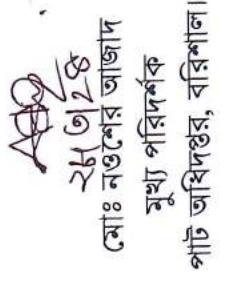 ২৮।৩।২৪
মোঃ নওশের আজাদ
মুখ্য পরিদর্শক
পাট অধিদপ্তর, বরিশাল।